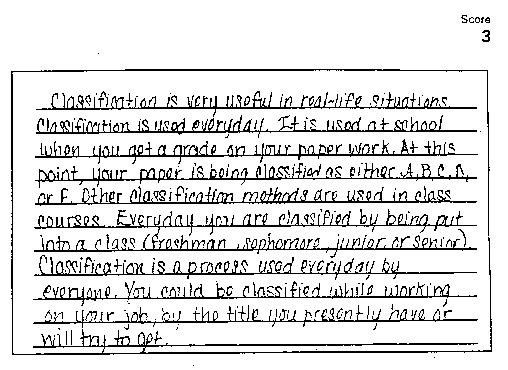 Score
3
Classification is very useful in real-life situations.
Classification is used everyday. It is used at school
when you get a grade on your paper work. At this
point, your paper is being classified as either A, B, C, D,
or F. Other classification methods are used in class
courses. Everyday you are classified by being put
into a class (freshman, sophomore, junior, or senior).
Classification is a process used everyday by
everyone. You could be classified while working
on your job, by the title you presently have or
will try to get.